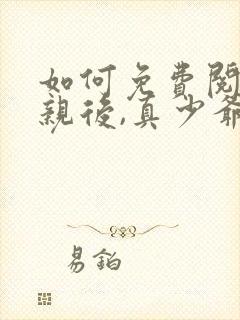 如何免費閱
親後,真少爺
易鉑